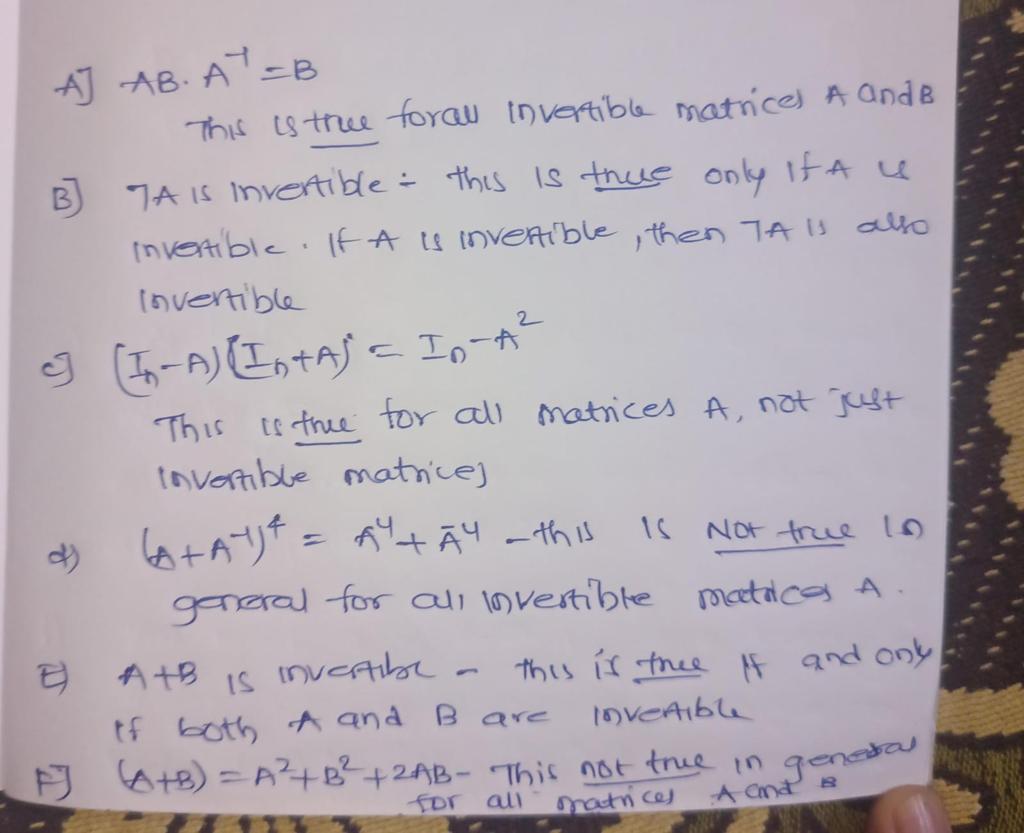 A] AB. A⁻¹ = B
This is true for all invertible matrices A and B
B] 7A is Invertible ÷ this is true only if A is
invertible. If A is invertible, then 7A is also
invertible
c] (Iₙ-A)(Iₙ+A) = Iₙ-A²
This is true for all matrices A, not just
invertible matrices
d) (A+A⁻¹)⁴ = A⁴+A⁻⁴ - this is NOT true in
general for all invertible matrices A.
E) A+B is invertible - this is true if and only
if both A and B are invertible
F] (A+B) = A²+B²+2AB- This not true in general
for all matrices A and B